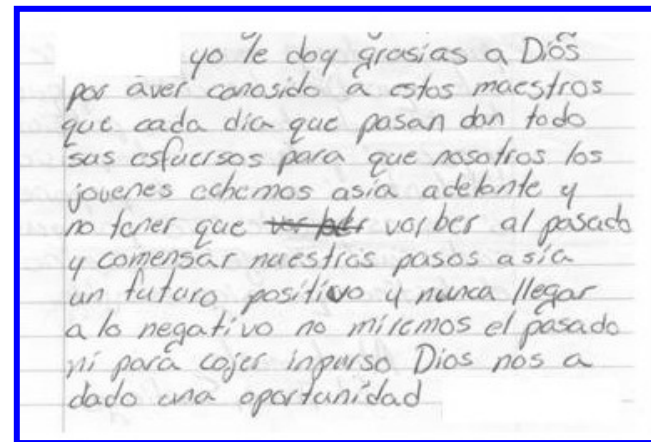 yo le doy grasias a Dios
por aver conosido a estos maestros
que cada dia que pasan dan todo
sus esfuersos para que nosotros los
jovenes echemos asia adelante y
no tener que vorber al pasado
y comensar nuestros pasos asia
un futuro positivo y nunca llegar
a lo negativo no miremos el pasado
ni para cojer inpurso Dios nos a
dado una oportunidad